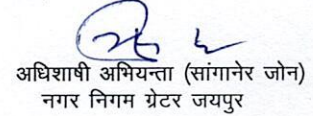 अधिशाषी अभियन्ता (सांगानेर जोन)
नगर निगम ग्रेटर जयपुर